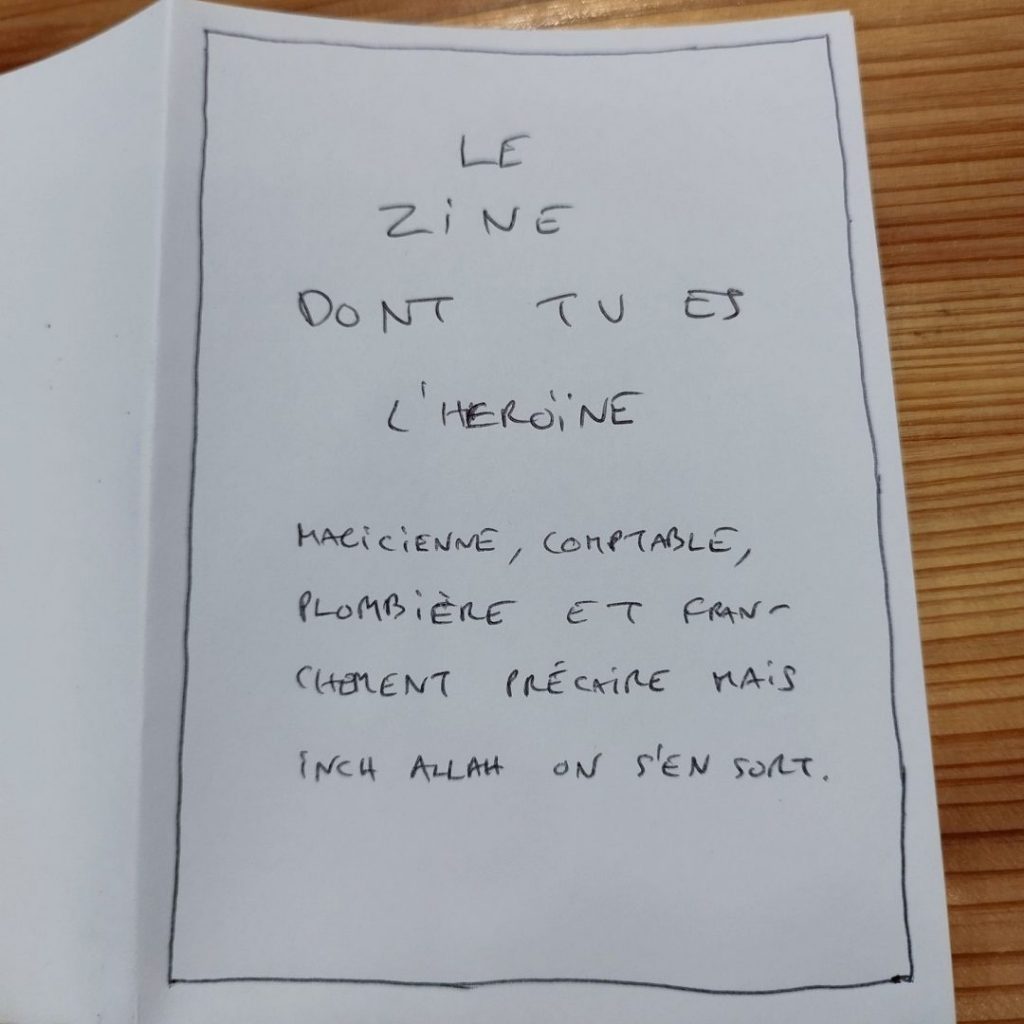 LE
ZiNE
DONT TU ES
L'HEROÏNE
MAGICIENNE, COMPTABLE,
PLOMBIÈRE ET FRAN-
CHEMENT PRÉCAIRE MAIS
INCH ALLAH ON S'EN SORT.